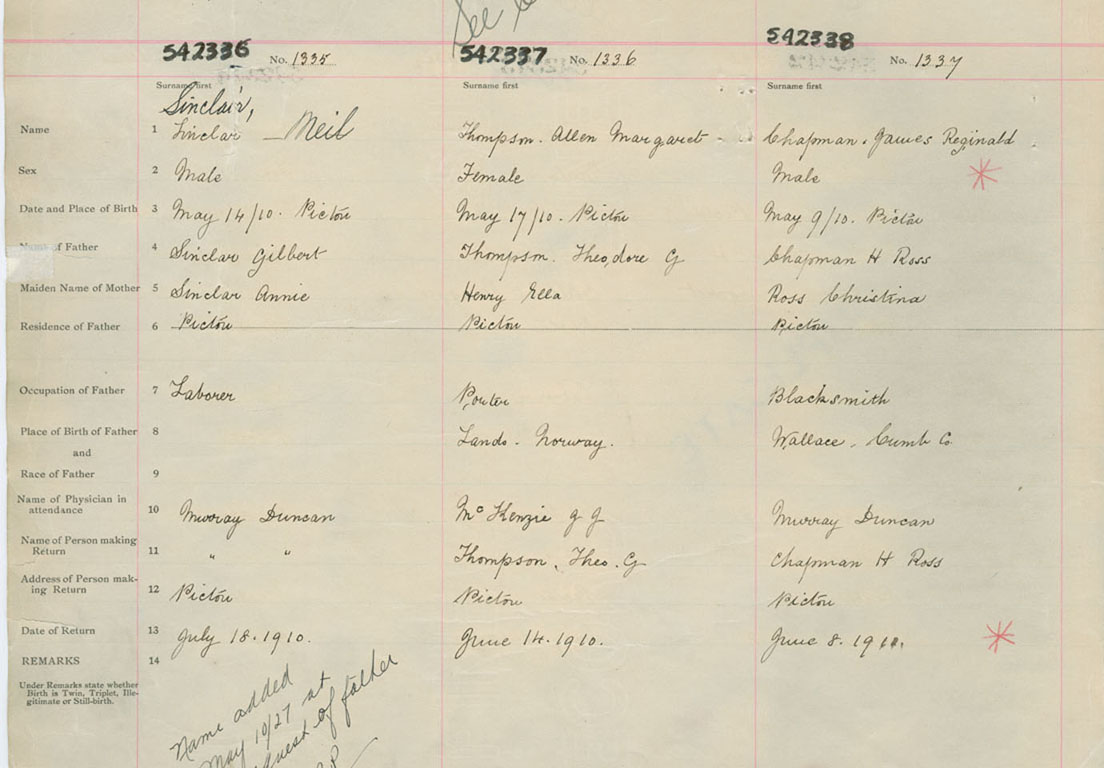 See
542336 No. 1335 542337 No. 1336 542338 No. 1337
Surname first Surname first Surname first
Sinclair,
Name 1 Sinclar Neil Thompson. Allen Margaret Chapman. James Reginald
Sex 2 Male Female Male
Date and Place of Birth 3 May 14/10. Pictou May 17/10. Pictou May 9/10. Pictou
Name of Father 4 Sinclar Gilbert Thompson. Theodore G Chapman H Ross
Maiden Name of Mother 5 Sinclar Annie Henry Ella Ross Christina
Residence of Father 6 Pictou Pictou Pictou
Occupation of Father 7 Laborer Porter Blacksmith
Place of Birth of Father 8 Lands. Norway. Wallace. Cumb Co.
and
Race of Father 9
Name of Physician in
attendance 10 Murray Duncan McKenzie Murray Duncan
Name of Person making
Return 11 " " Thompson. Theo. G Chapman H Ross
Address of Person mak-
ing Return 12 Pictou Pictou Pictou
Date of Return 13 July 18. 1910. June 14. 1910. June 8. 1911.
REMARKS 14
Under Remarks state whether
Birth is Twin, Triplet, Ille-
gitimate or Still-birth.
Name added
May 10/27 at
request of father